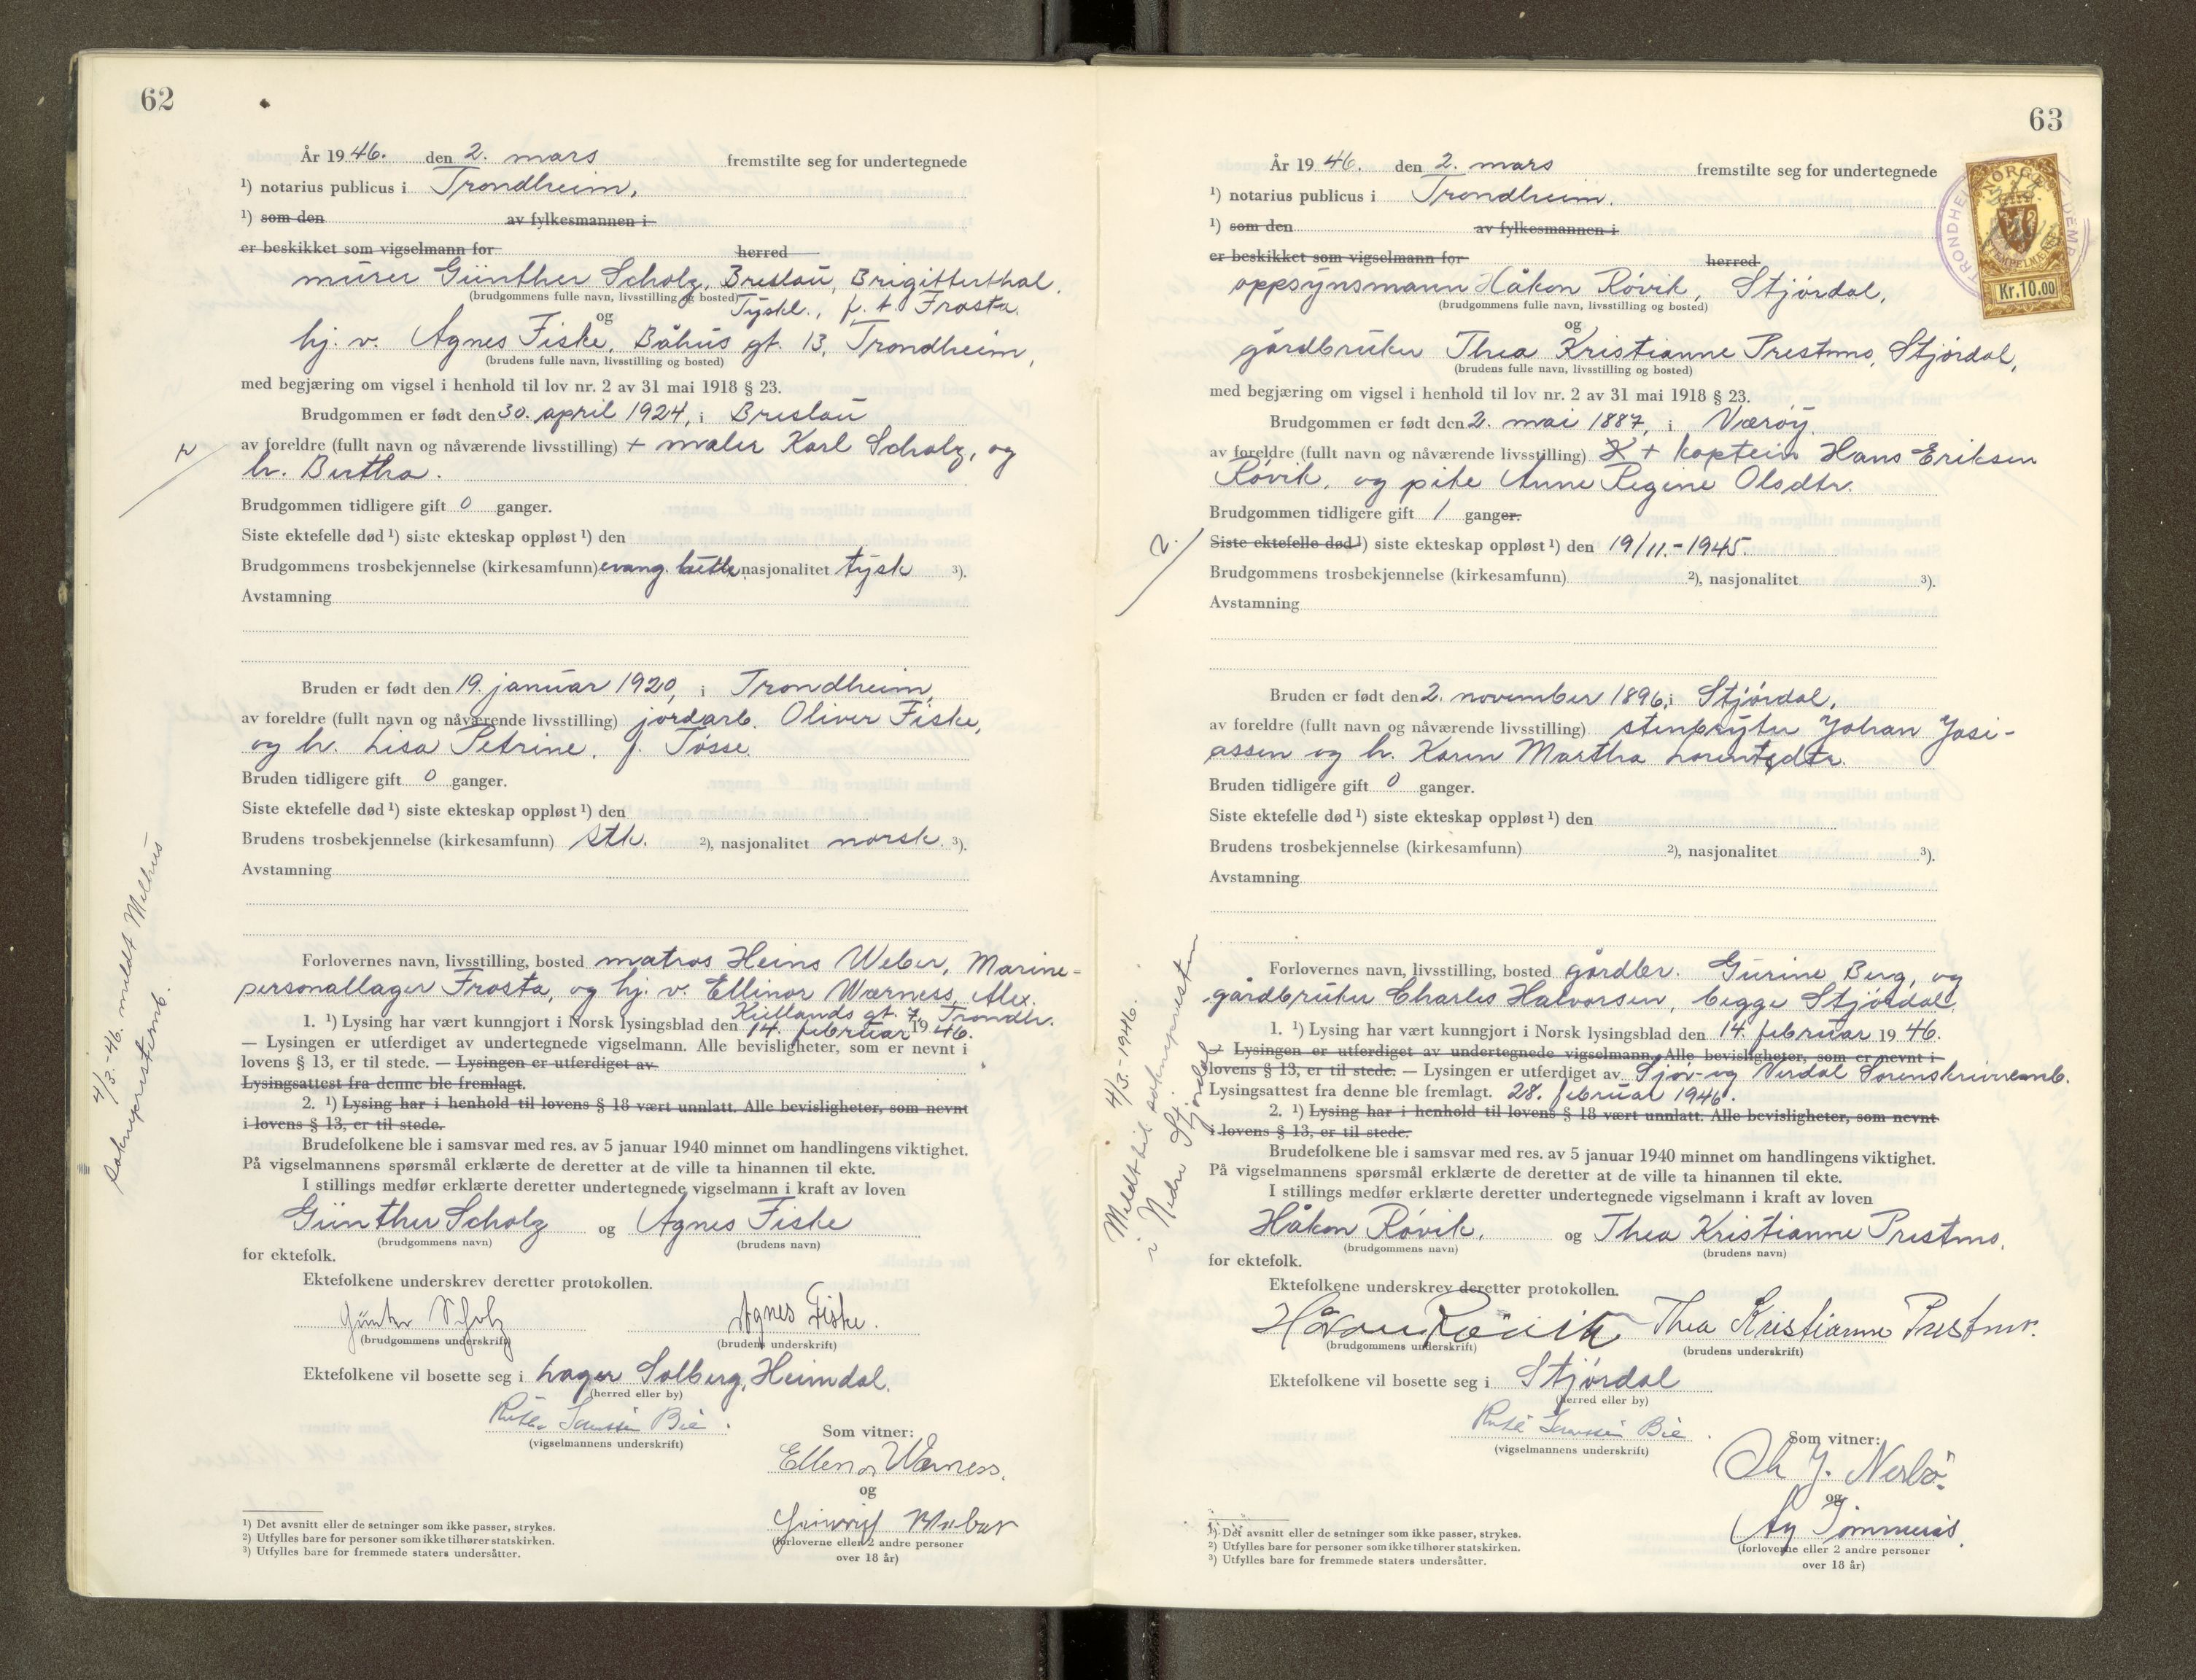 62
År 1946. den 2. mars fremstilte seg for undertegnede
¹) notarius publicus i Trondheim,
¹) som den av fylkesmannen i
er beskikket som vigselmann for herred
murer Günther Scholz, Breslau, Brigittenthal,
(brudgommens fulle navn, livsstilling og bosted) Tyskl., p. t. Frosta.
og
hj. v. Agnes Fiske, Båhus gt. 13, Trondheim,
(brudens fulle navn, livsstilling og bosted)
med begjæring om vigsel i henhold til lov nr. 2 av 31 mai 1918 § 23.
Brudgommen er født den 30. april 1924, i Breslau
av foreldre (fullt navn og nåværende livsstilling) + maler Karl Scholz, og
h. Bertha.
Brudgommen tidligere gift 0 ganger.
Siste ektefelle død ¹) siste ekteskap oppløst ¹) den
Brudgommens trosbekjennelse (kirkesamfunn) evang. luth. nasjonalitet tysk ³).
Avstamning
Bruden er født den 19. januar 1920, i Trondheim,
av foreldre (fullt navn og nåværende livsstilling) jordarb. Oliver Fiske,
og h. Lisa Petrine, f. Tøsse.
Bruden tidligere gift 0 ganger.
Siste ektefelle død ¹) siste ekteskap oppløst ¹) den
Brudens trosbekjennelse (kirkesamfunn) stk. ²), nasjonalitet norsk. ³).
Avstamning
Forlovernes navn, livsstilling, bosted matros Heins Weber, Marine-
personallager Frosta, og hj. v. Ellinor Wærness, Alex.
Kiellands gt. 7, Trondh.
1. ¹) Lysing har vært kunngjort i Norsk lysingsblad den 14. februar 1946.
— Lysingen er utferdiget av undertegnede vigselmann. Alle bevisligheter, som er nevnt i
lovens § 13, er til stede. — Lysingen er utferdiget av
Lysingsattest fra denne ble fremlagt.
2. ¹) Lysing har i henhold til lovens § 18 vært unnlatt. Alle bevisligheter, som nevnt
i lovens § 13, er til stede.
Brudefolkene ble i samsvar med res. av 5 januar 1940 minnet om handlingens viktighet.
På vigselmannens spørsmål erklærte de deretter at de ville ta hinannen til ekte.
I stillings medfør erklærte deretter undertegnede vigselmann i kraft av loven
Günther Scholz og Agnes Fiske
(brudgommens navn) (brudens navn)
for ektefolk.
Ektefolkene underskrev deretter protokollen.
Günter Scholz Agnes Fiske.
(brudgommens underskrift) (brudens underskrift)
Ektefolkene vil bosette seg i Lager Solberg, Heimdal.
(herred eller by)
Bie.
(vigselmannens underskrift)
Som vitner:
Ellenor Wærness.
og
Heinrich Weber
(forloverne eller 2 andre personer
over 18 år)
¹) Det avsnitt eller de setninger som ikke passer, strykes.
²) Utfylles bare for personer som ikke tilhører statskirken.
³) Utfylles bare for fremmede staters undersåtter.
4/3.-46. meldt Melhus
sokneprestemb.
63
År 1946. den 2. mars fremstilte seg for undertegnede
¹) notarius publicus i Trondheim.
¹) som den av fylkesmannen i
er beskikket som vigselmann for herred
NORGE
STEMPELMERKE
Kr.10.00
TRONDHEIM
oppsynsmann Håkon Røvik, Stjørdal,
(brudgommens fulle navn, livsstilling og bosted)
og
gårdbruker Thea Kristianne Prestmo, Stjørdal,
(brudens fulle navn, livsstilling og bosted)
med begjæring om vigsel i henhold til lov nr. 2 av 31 mai 1918 § 23.
Brudgommen er født den 2. mai 1887, i Værøy.
av foreldre (fullt navn og nåværende livsstilling) + kaptein Hans Eriksen
Røvik, og pike Anne Regine Olsdtr.
Brudgommen tidligere gift 1 ganger.
Siste ektefelle død ¹) siste ekteskap oppløst ¹) den 19/11.-1945.
Brudgommens trosbekjennelse (kirkesamfunn) ²), nasjonalitet ³).
Avstamning
2.
Bruden er født den 2. november 1896, i Stjørdal,
av foreldre (fullt navn og nåværende livsstilling) stenbryter Johan Josi-
assen og h. Karen Martha Lorentsdtr.
Bruden tidligere gift 0 ganger.
Siste ektefelle død ¹) siste ekteskap oppløst ¹) den
Brudens trosbekjennelse (kirkesamfunn) ²), nasjonalitet ³).
Avstamning
Forlovernes navn, livsstilling, bosted gårdbr. Gurine Berg, og
gårdbruker Charles Halvorsen, begge Stjørdal.
1. ¹) Lysing har vært kunngjort i Norsk lysingsblad den 14. februar 1946.
— Lysingen er utferdiget av undertegnede vigselmann. Alle bevisligheter, som er nevnt i
lovens § 13, er til stede. — Lysingen er utferdiget av Stjør- og Verdal Sorenskriveremb.
Lysingsattest fra denne ble fremlagt. 28. februar 1946.
2. ¹) Lysing har i henhold til lovens § 18 vært unnlatt. Alle bevisligheter, som nevnt
i lovens § 13, er til stede.
Brudefolkene ble i samsvar med res. av 5 januar 1940 minnet om handlingens viktighet.
På vigselmannens spørsmål erklærte de deretter at de ville ta hinannen til ekte.
I stillings medfør erklærte deretter undertegnede vigselmann i kraft av loven
Håkon Røvik. og Thea Kristianne Prestmo.
(brudgommens navn) (brudens navn)
for ektefolk.
Ektefolkene underskrev deretter protokollen.
Håkon Røvik Thea Kristianne Prestmo.
(brudgommens underskrift) (brudens underskrift)
Ektefolkene vil bosette seg i Stjørdal
(herred eller by)
Bie.
(vigselmannens underskrift)
Som vitner:
J. Nesbø.
og
(forloverne eller 2 andre personer
over 18 år)
¹) Det avsnitt eller de setninger som ikke passer, strykes.
²) Utfylles bare for personer som ikke tilhører statskirken.
³) Utfylles bare for fremmede staters undersåtter.
4/3.-1946.
Meldt til soknepresten
i Nedre Stjørdal